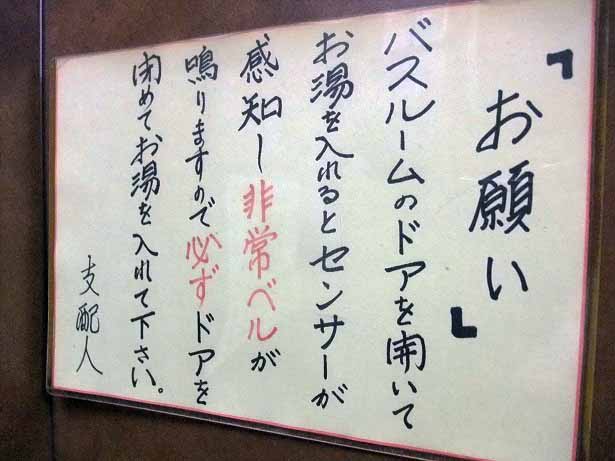 『お願い』
バスルームのドアを開いて
お湯を入れるとセンサーが
感知し非常ベルが
鳴りますので必ずドアを
閉めてお湯を入れて下さい。
支配人